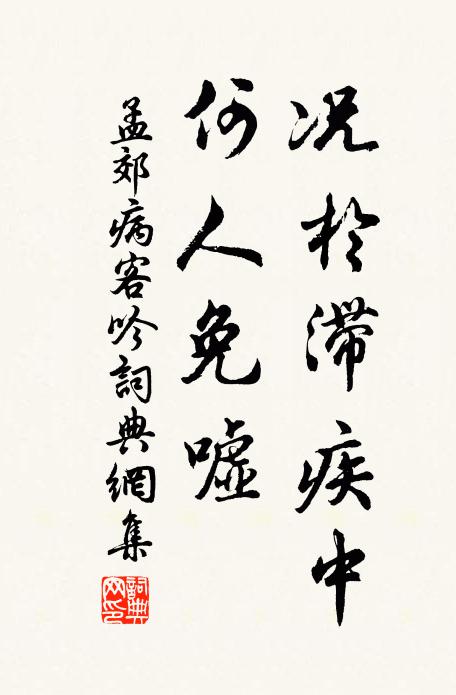 况於滞疾中
何人免嘘
孟郊病客吟詞典網集
詞典网印